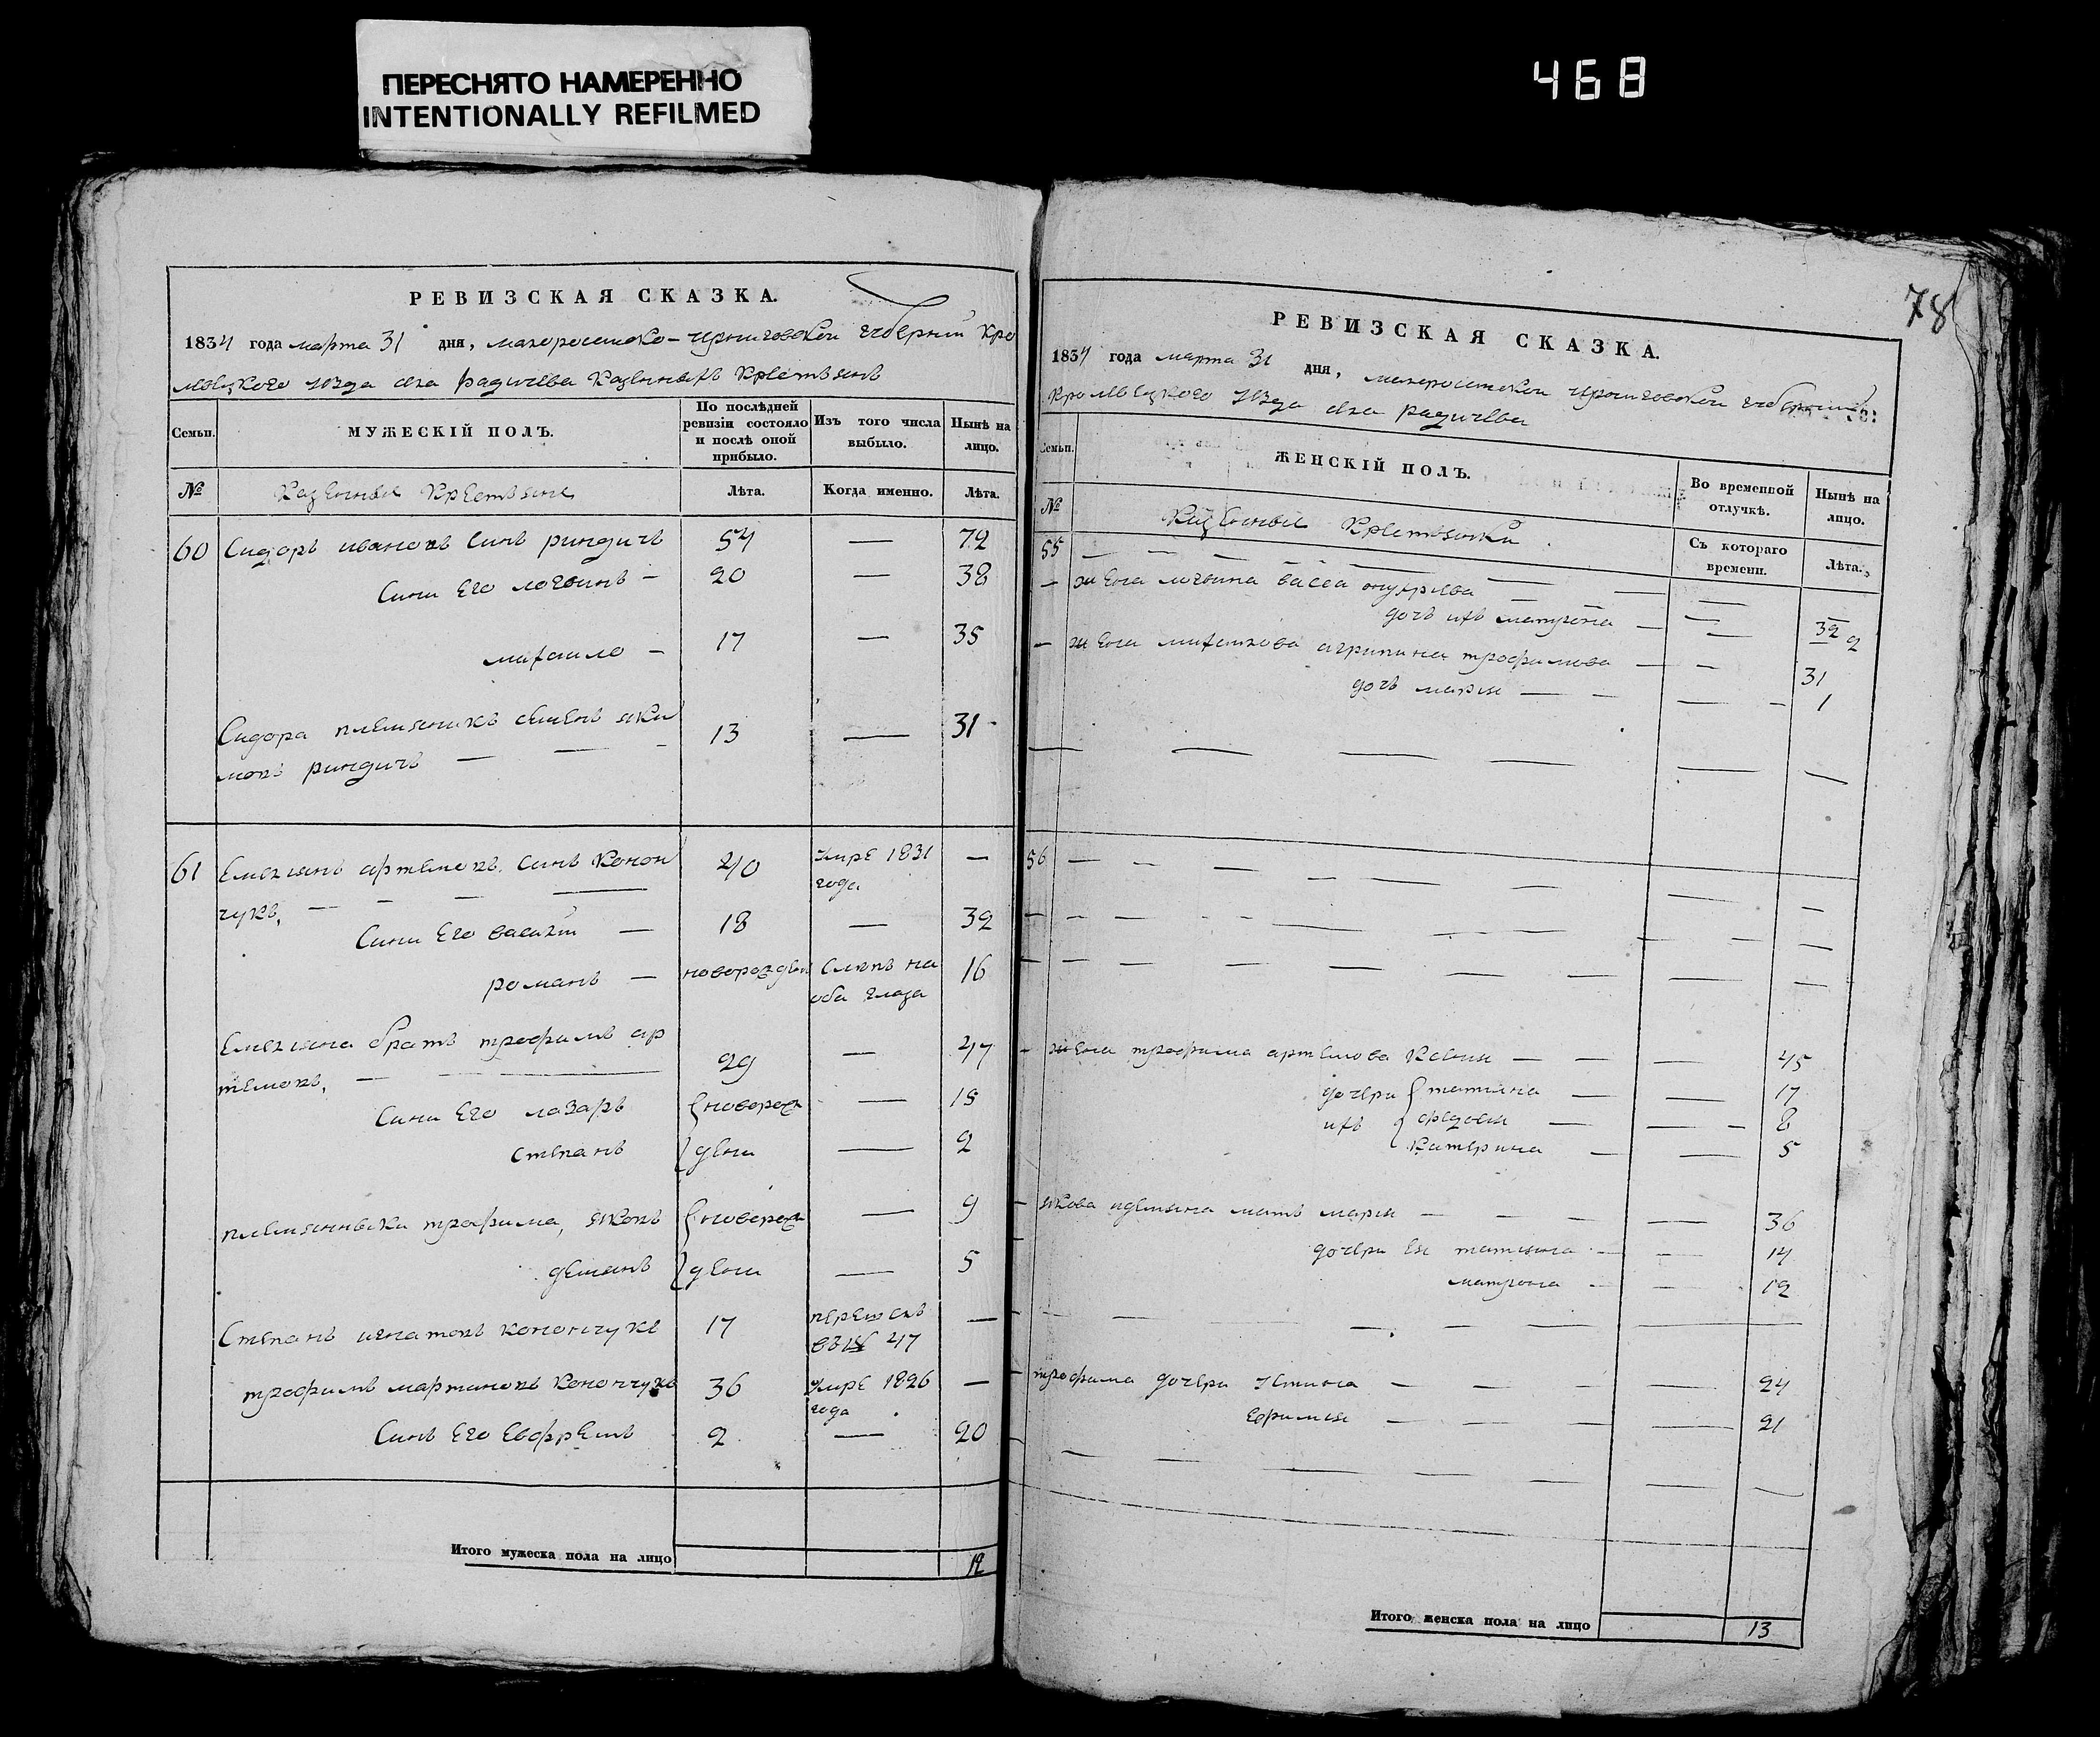 ПЕРЕСНЯТО НАМЕРЕННО
INTENTIONALLY REFILMED
468
РЕВИЗСКАЯ СКАЗКА.
1834 года марта 31 дня, малоросийско-черниговской губернии Кро
левецкого уезда села радичева казенныхъ крестьянъ
Семьи. МУЖЕСКІЙ ПОЛЪ. По послѣдней ревизіи состояло и послѣ оной прибыло. Изъ того числа выбыло. Нынѣ на лицо.
№ Казенныи крестьяни Лѣта. Когда именно. Лѣта.
60 Сидоръ ивановъ синъ риндичъ 54 — 72
Сини Его логвинъ — 20 — 38
михаило — 17 — 35
Сидора племяникъ семенъ яки 13 — 31
мовъ риндичъ —
61 Емелянъ артемовъ синъ Конон 40 умре 1831 —
чукъ, — года
Сини Его василий — 18 — 32
романъ — новорожден слепъ на 16
оба глаза
Емеляна братъ трофимъ ар 29 — 47
темовъ, —
Сини Его лазаръ новорож — 15
степанъ дени — 2
племянныки трофима, яковъ новорож — 9
демянъ дени — 5
Степанъ игнатовъ конончукъ 17 перешелъ —
въ № 47
трофимъ мартиновъ Конончукъ 36 умре 1826 —
года
Синъ Его Евфремъ 2 — 20
Итого мужеска пола на лицо 12
78
РЕВИЗСКАЯ СКАЗКА.
1834 года марта 31 дня, малоросийской черниговской губернии
кролевецкого уезда села радичева
Семьи. ЖЕНСКІЙ ПОЛЪ. Во временной отлучкѣ. Нынѣ на лицо.
№ Казенныи крестьянки Съ котораго времени. Лѣта.
55 — — — —
— жена логвина васса онуфриева — — 32
дочъ ихъ матрона — — 2
— жена михаилова агрипина трофимова — — 31
дочъ мария — — 1
56 — — — —
— жена трофима артемова Ксения — — 45
дочери татияна — — 17
ихъ федосия — — 8
Катерина — — 5
— якова идемяна мать мария — — 36
дочери Ея татияна — — 14
матрона — — 12
— трофима дочери устина — — 24
Ефимия — — 21
Итого женска пола на лицо 13